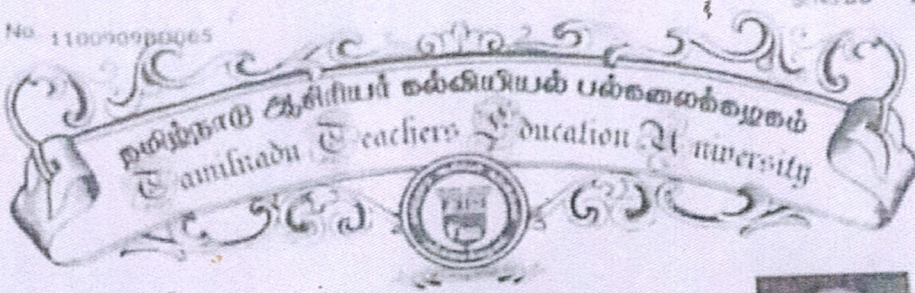 No. 110090980065
தமிழ்நாடு ஆசிரியர் கல்வியியல் பல்கலைக்கழகம்
Tamilnadu Teachers Education University